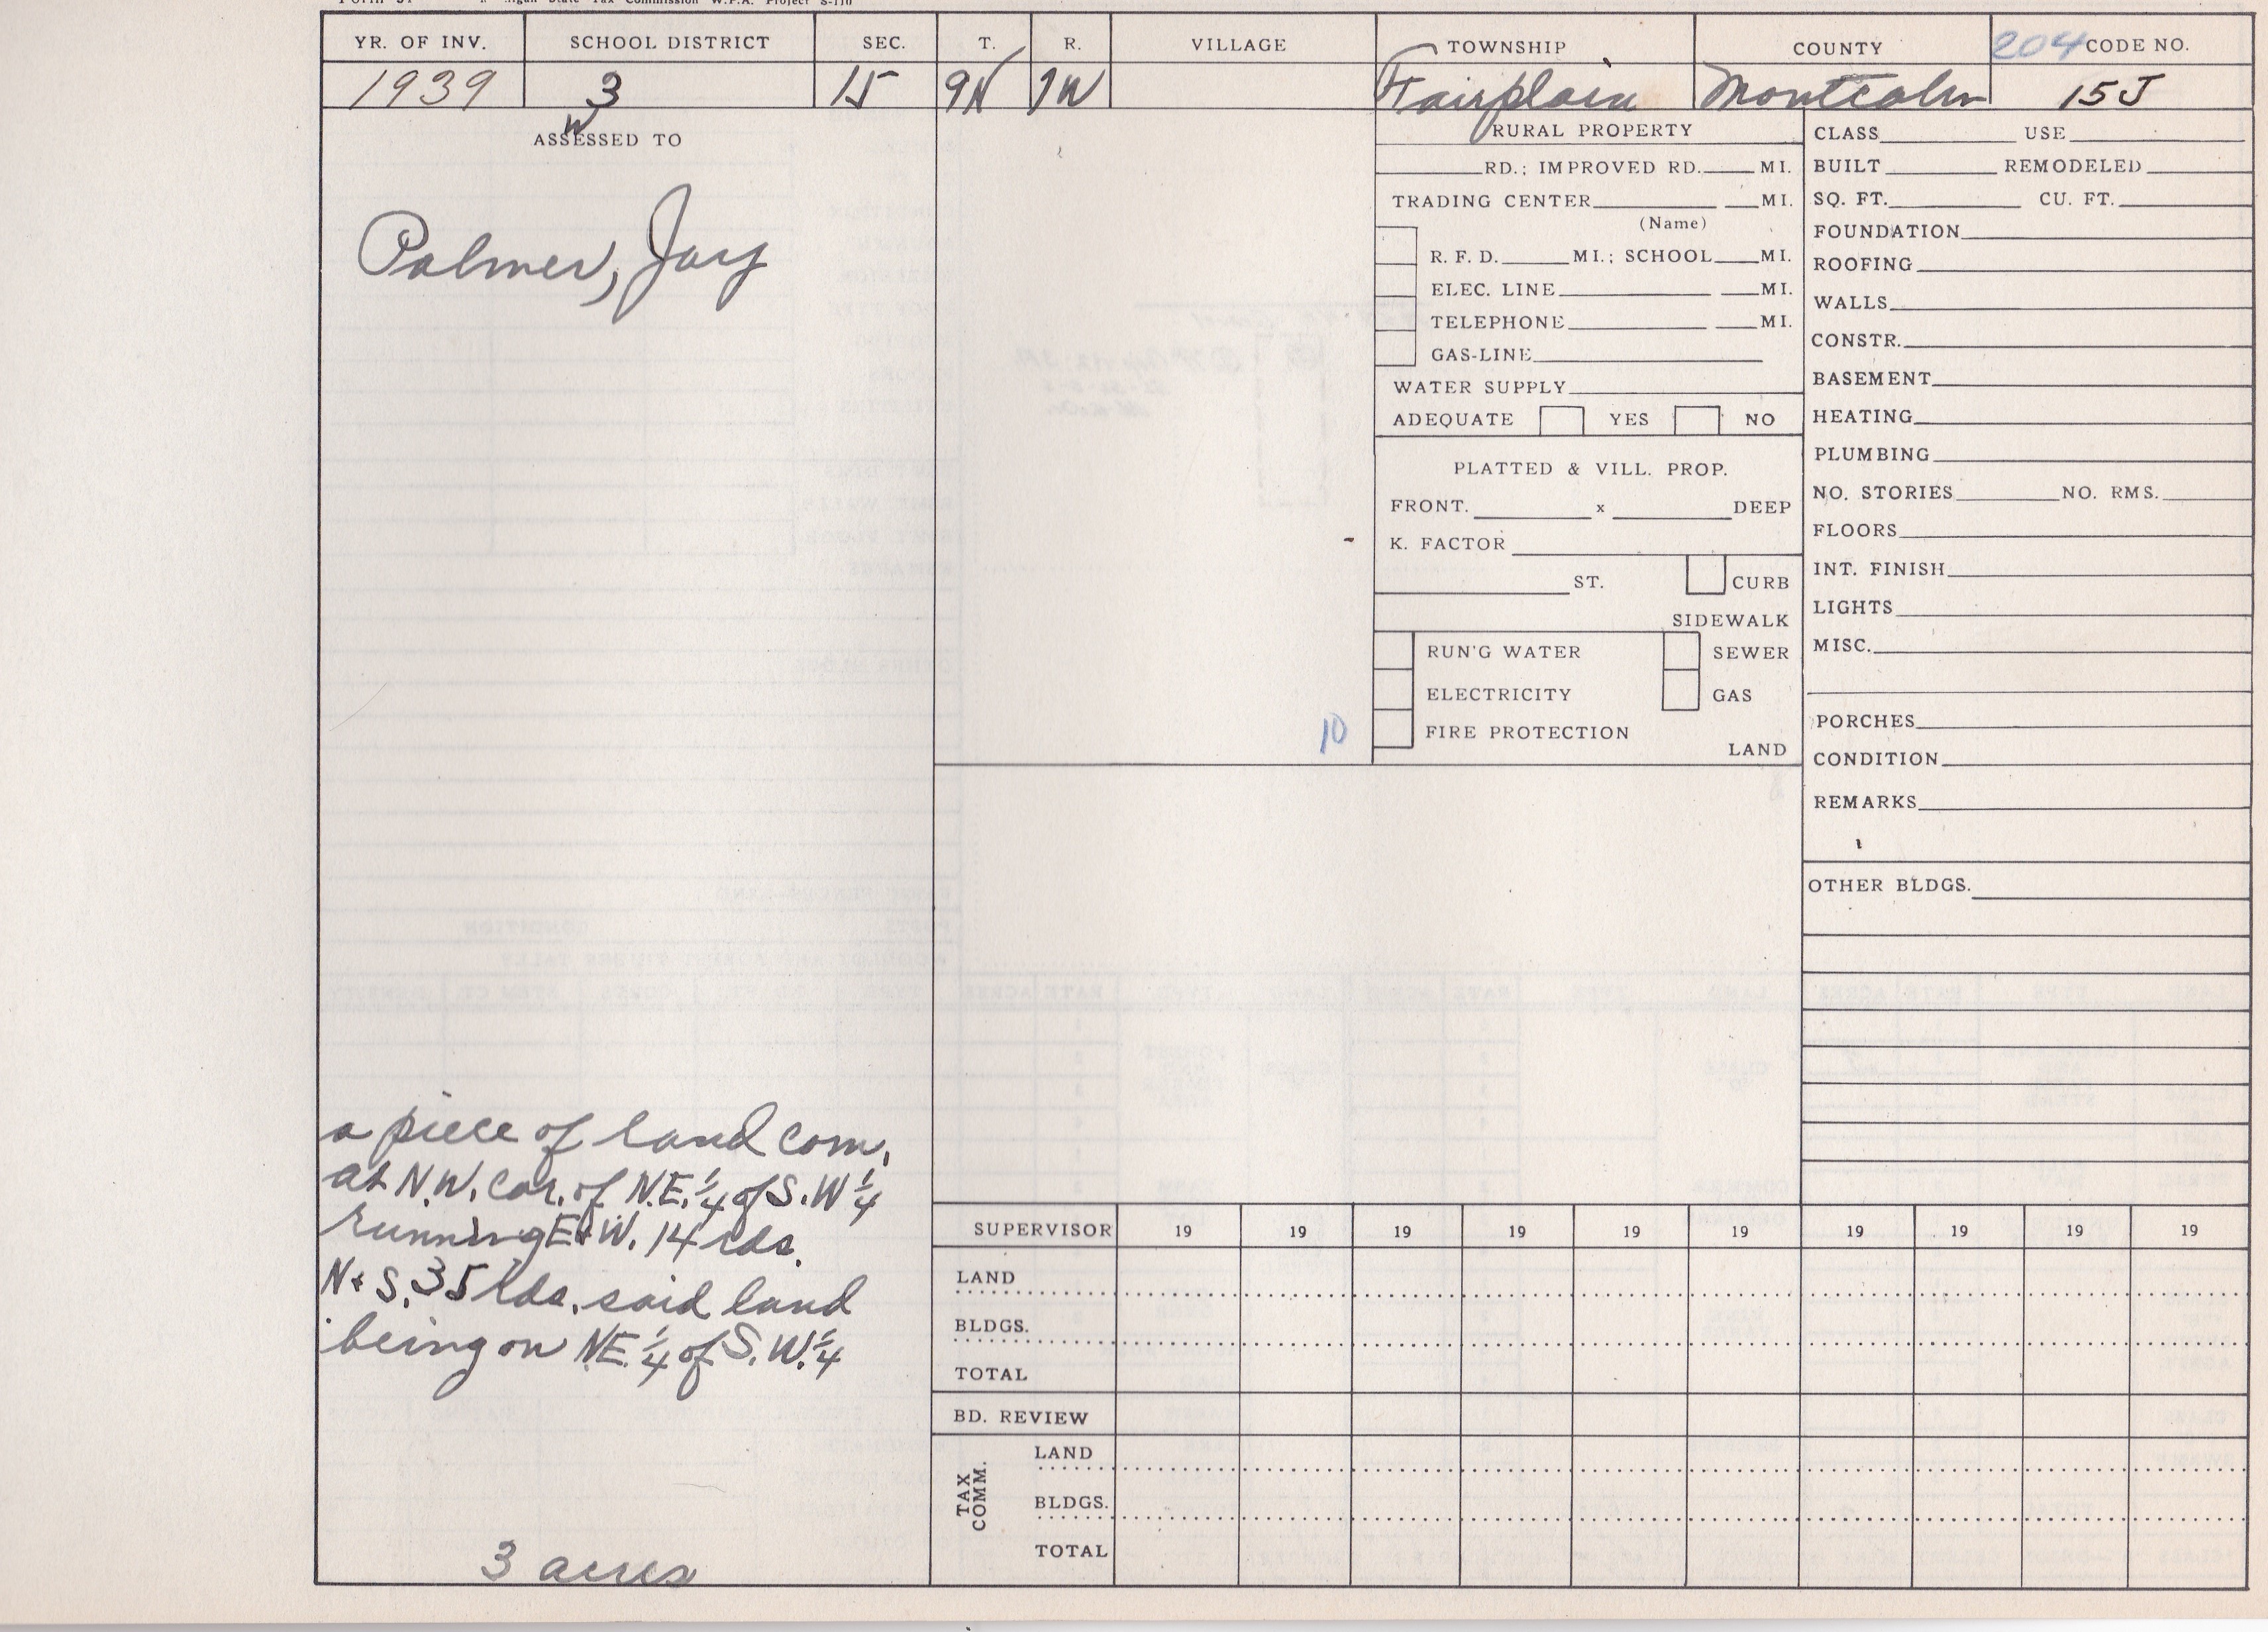 Michigan State Tax Commission W.P.A. Project S-110
YR. OF INV. SCHOOL DISTRICT SEC. T. R. VILLAGE TOWNSHIP COUNTY 204 CODE NO.
1939 3 15 9N 7W Fairplain Montcalm 15J
W
ASSESSED TO
Palmer, Jay
a piece of land com.
at N.W. cor. of N.E. 1/4 of S.W 1/4
running E & W. 14 rds.
N & S. 35 rds. said land
being on NE. 1/4 of S.W. 1/4
3 acres
10
RURAL PROPERTY
RD.; IMPROVED RD. MI.
TRADING CENTER MI.
(Name)
R. F. D. MI.; SCHOOL MI.
ELEC. LINE MI.
TELEPHONE MI.
GAS-LINE
WATER SUPPLY
ADEQUATE YES NO
PLATTED & VILL. PROP.
FRONT. x DEEP
K. FACTOR
ST. CURB
SIDEWALK
RUN'G WATER SEWER
ELECTRICITY GAS
FIRE PROTECTION
LAND
CLASS USE
BUILT REMODELED
SQ. FT. CU. FT.
FOUNDATION
ROOFING
WALLS
CONSTR.
BASEMENT
HEATING
PLUMBING
NO. STORIES NO. RMS.
FLOORS
INT. FINISH
LIGHTS
MISC.
PORCHES
CONDITION
REMARKS
OTHER BLDGS.
SUPERVISOR 19 19 19 19 19 19 19 19 19 19
LAND
BLDGS.
TOTAL
BD. REVIEW
TAX COMM.
LAND
BLDGS.
TOTAL